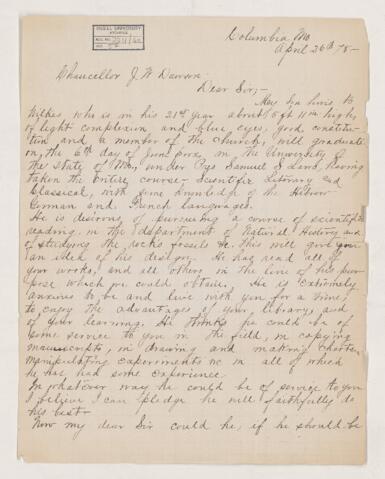 McGILL UNIVERSITY
ARCHIVES
ACC. NO.
REF.
Columbia, Mo
April 26th 75-
Chancellor J. W. Dawson
Dear Sir;-
May
Wilkes who is in his 21st year about 5 ft 11 in high,
of light complexion and blue eyes, good constitu-
tion and a member of the church, will graduate
on the 6th day of June prox in the University of
the State of Mo, under Pres Samuel S Laws, having
taken the entire course - Scientific Literary and
Classical, with some knowledge of the Hebrew
German and French languages.
He is desirous of pursuing a course of scientific
reading in the department of Natural History and
of studying the rocks fossils &c. This will give you
an idea of his design. He has read all of
your works, and all others in the line of his pur
pose which he could obtain. He is extremely
anxious to be and live with you for a time,
to enjoy the advantages of your library and
of your learning. He thinks he could be of
some service to you in the field, in copying
manuscripts, in drawing and making charts
manipulating experiments &c in all of which
he has had some experience.
In whatever way he could be of service to you
I believe I can pledge he will faithfully do
his best-
Now my dear Sir could he, if he should be